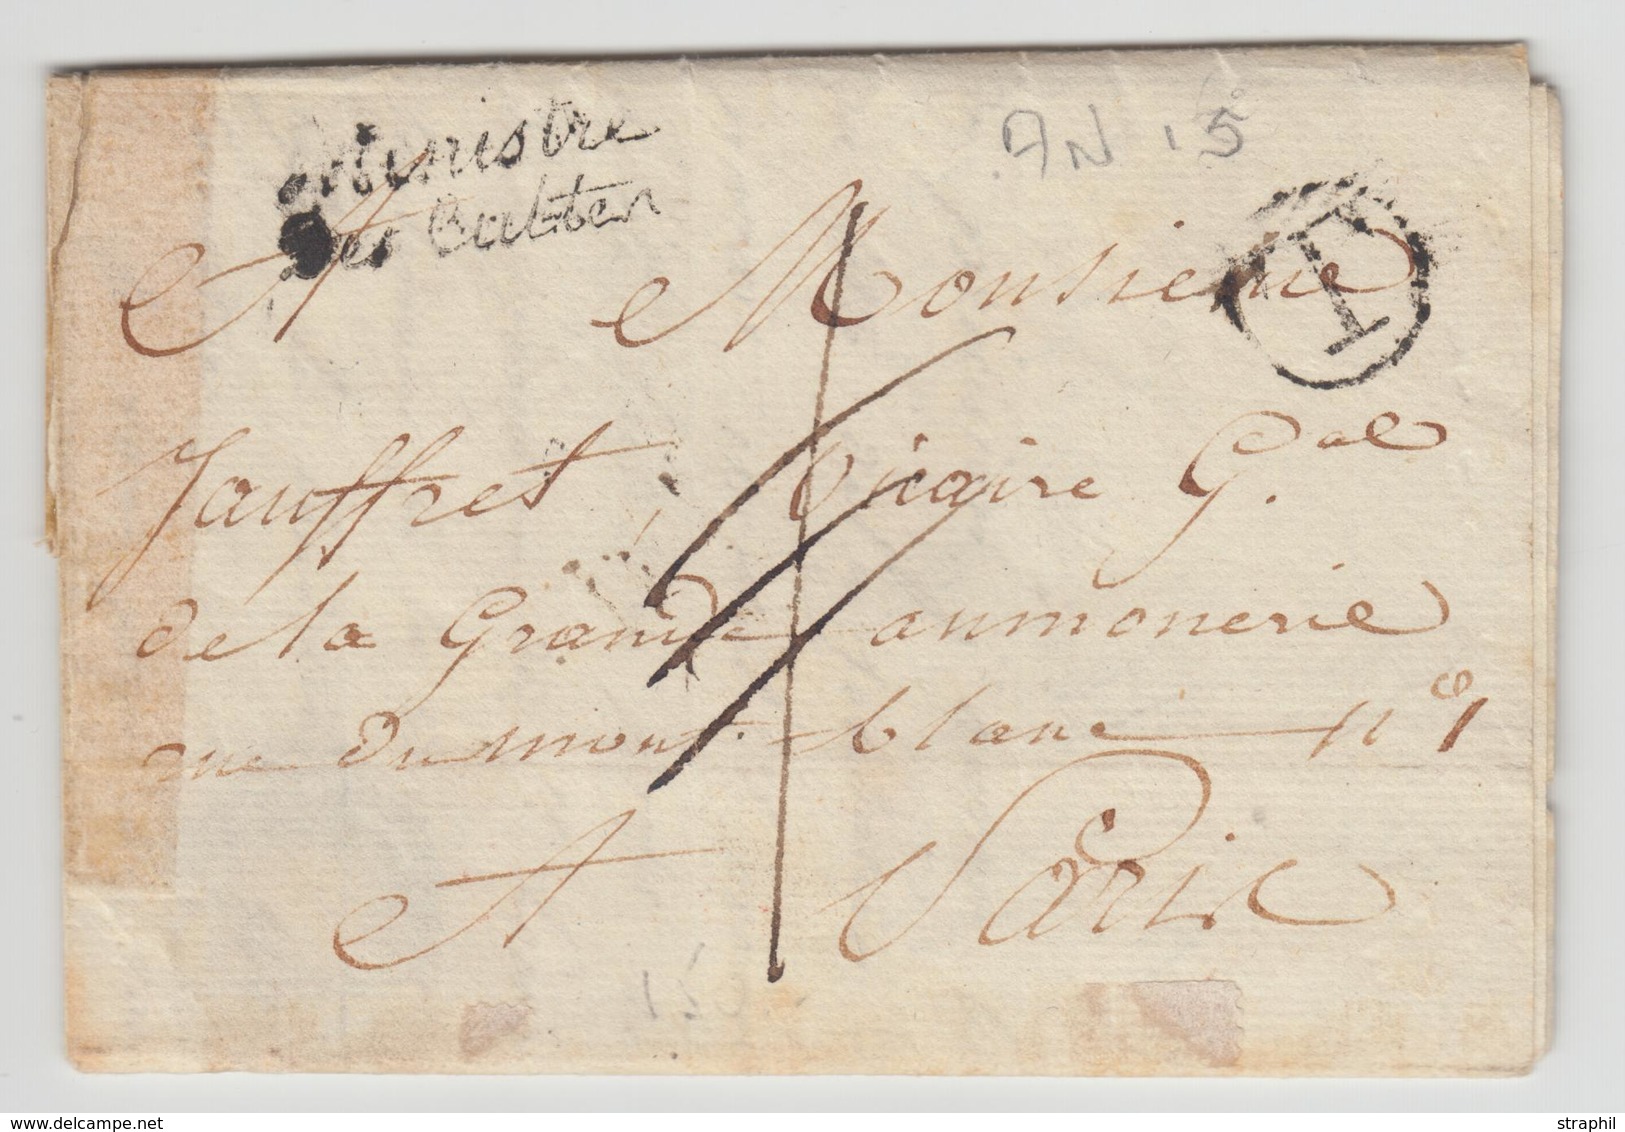 Ministre
Des Cultes
AN 15
A Monsieur
Jauffret, Vicaire G.al
de la Grande aumonerie
rue du mont-blanc n°1
A Paris
straphil